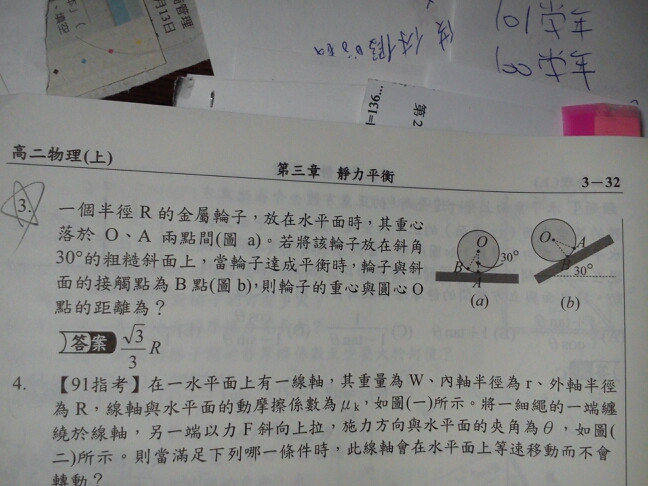 管理
月13日
填空
後 徐假的和
101 学年
100 学年
=136...
第2
高二物理(上)
第三章 靜力平衡
3-32
3.
一個半徑 R 的金屬輪子，放在水平面時，其重心
落於 O、A 兩點間(圖 a)。若將該輪子放在斜角
30°的粗糙斜面上，當輪子達成平衡時，輪子與斜
面的接觸點為 B 點(圖 b)，則輪子的重心與圓心 O
點的距離為？
O
B
A
30°
(a)
O
A
B
30°
(b)
答案 √3/3 R
4. 【91指考】在一水平面上有一線軸，其重量為 W、內軸半徑為 r、外軸半徑
為 R，線軸與水平面的動摩擦係數為 μk，如圖(一)所示。將一細繩的一端纏
繞於線軸，另一端以力 F 斜向上拉，施力方向與水平面的夾角為 θ，如圖(
二)所示。則當滿足下列哪一條件時，此線軸會在水平面上等速移動而不會
轉動？